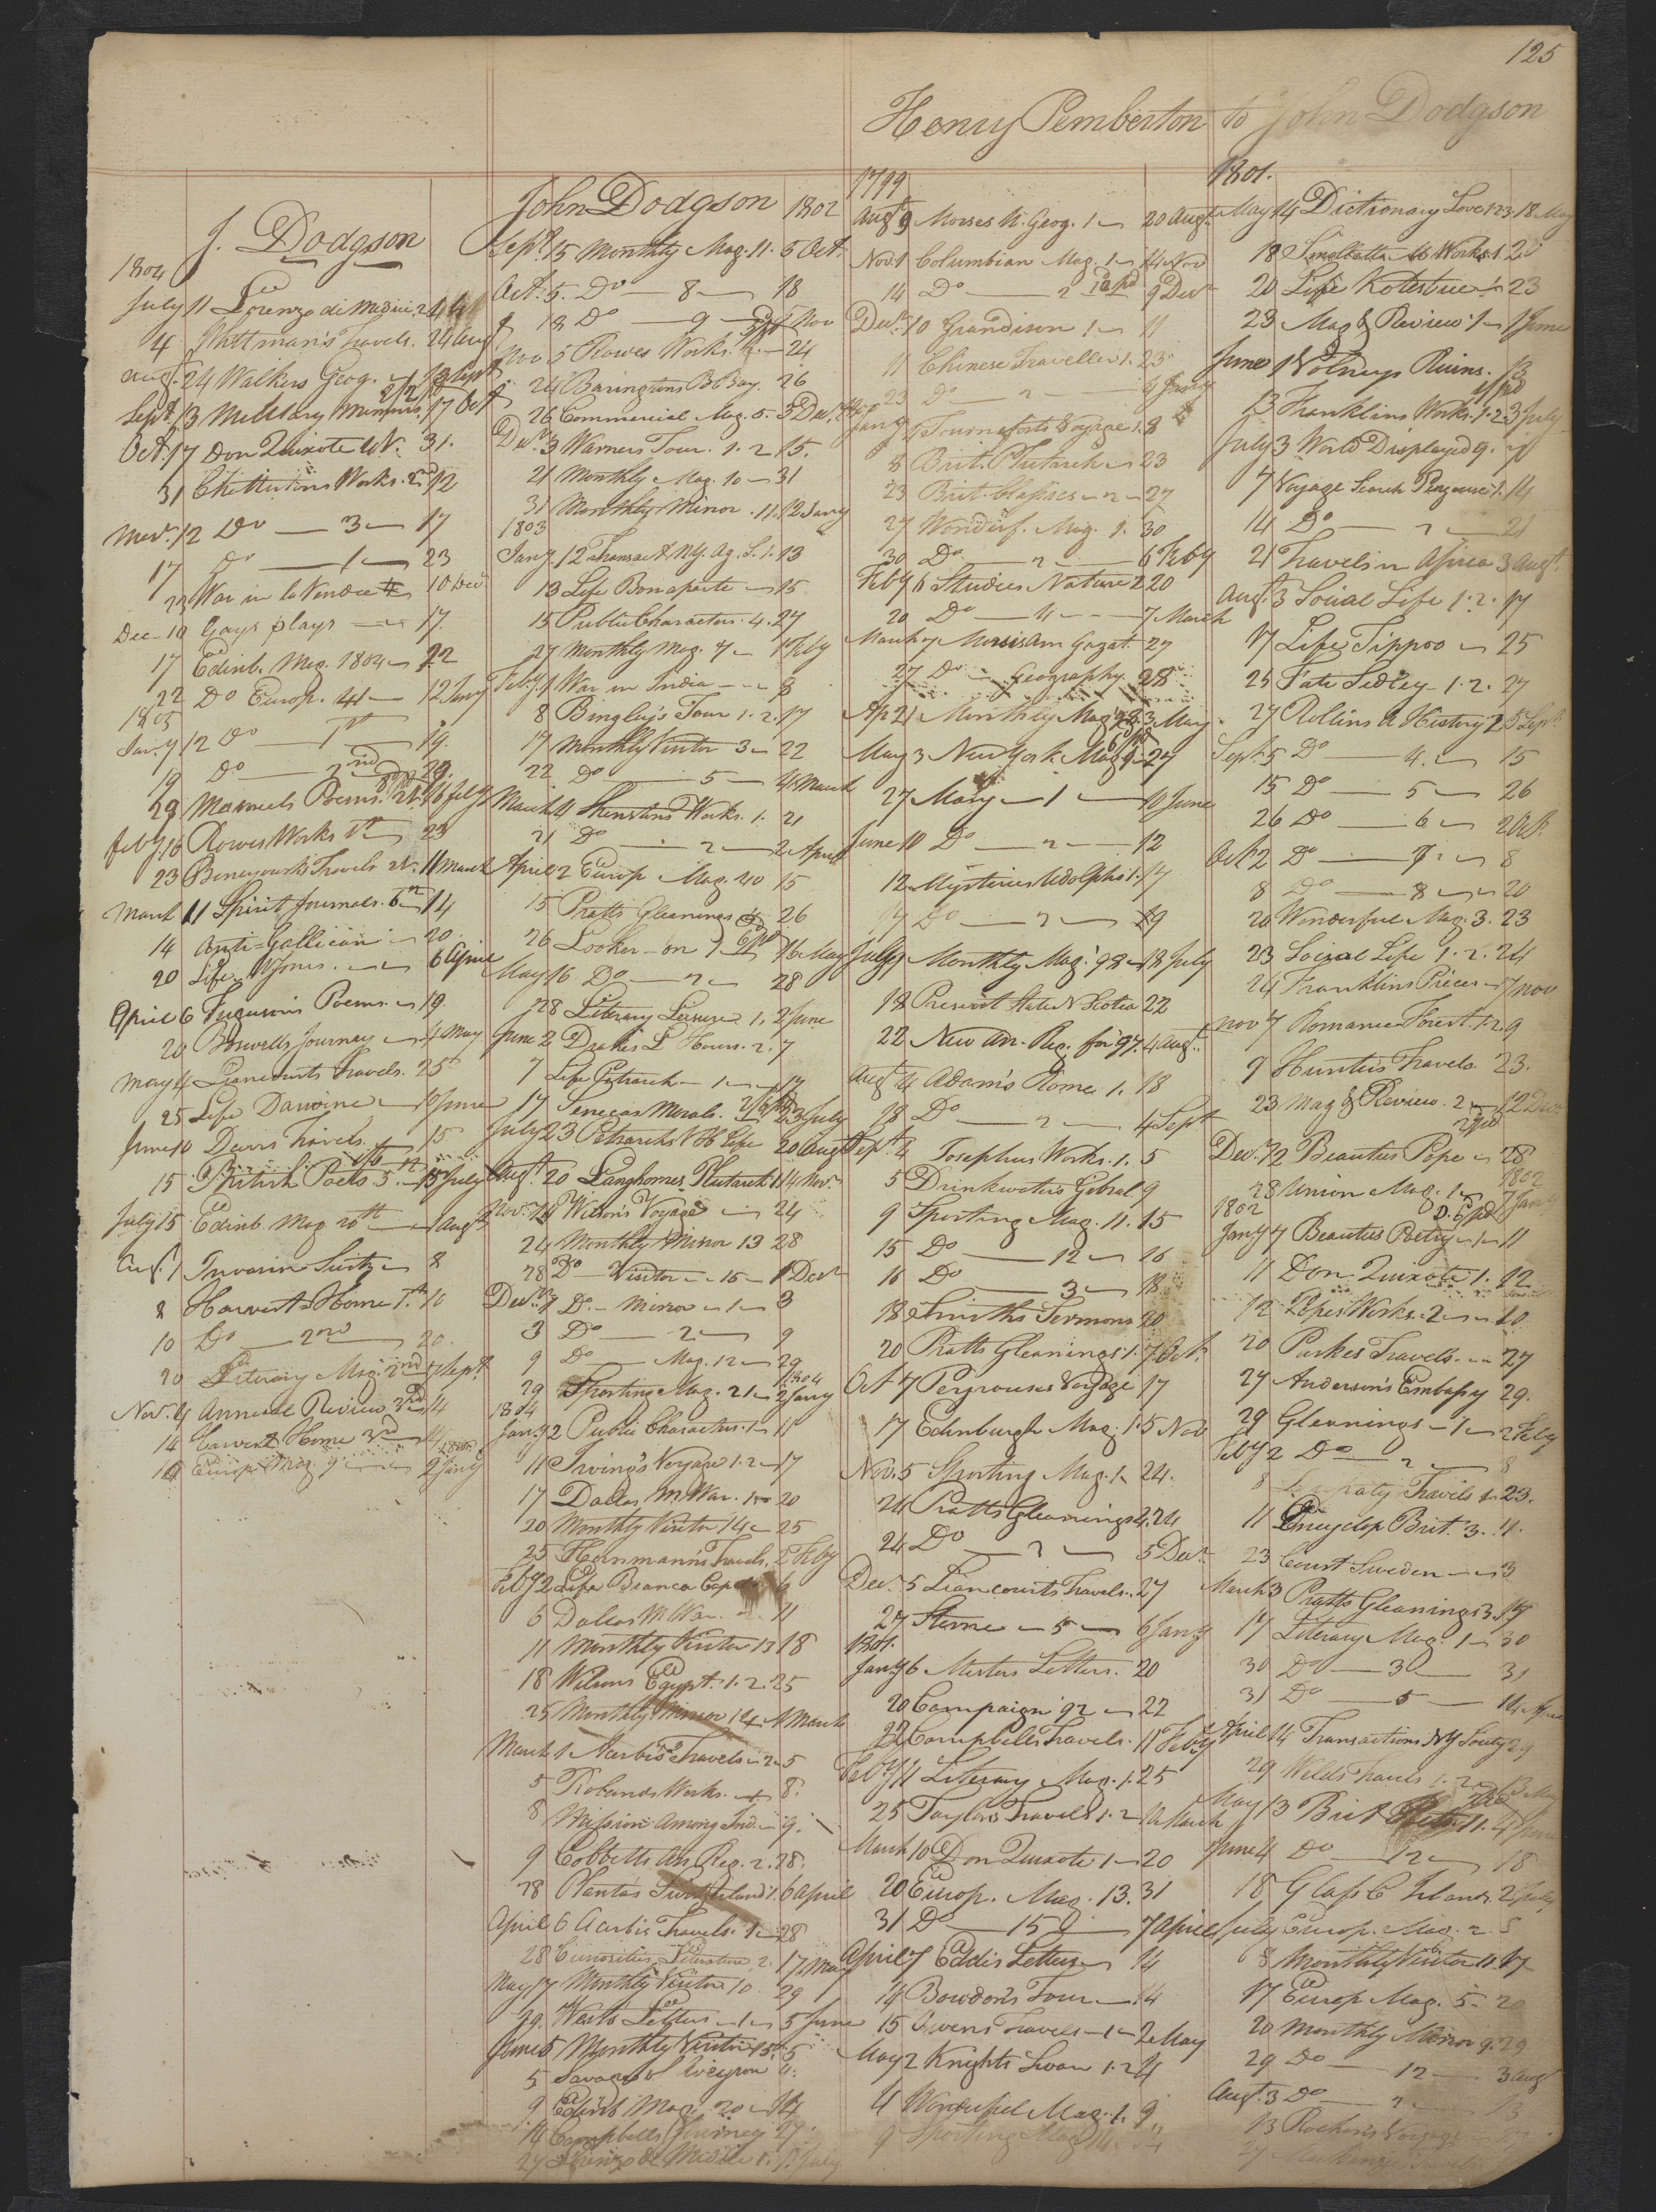 125
Henry Pemberton to John Dodgson
J. Dodgson
1804
July 11 Lorenzo di Medici 2
4 Wittman's Travels. 24 Aug
Aug. 24 Walkers Geog. 13 Sept
Sept. 13 Military Memoirs. 17 Oct
Oct. 17 Don Quixote 4 V. 31.
31 Works. 2nd 12
Nov. 12 Do — 3 — 17
17 Do — 1 — 23
23 War in la Vendee 10 Dec.
Dec 10 Gays plays — 17
17 Edinb. Mag. 1804 22
22 Do Europ. 41 — 12 Jany
1805
Jany 12 Do — 1st 19.
19 Do — 2nd 29.
29 Poems. 16 feby
feby 16 Rowes Works 1st 23
23 Travels 11 March
March 11 Spirit Journals. 14
14 Anti-Gallican 20
20 Life W Jones. 6 April
April 6 Fergusons Poems 19.
20 Boswells Journey 4 May
May 4 Liancourts Travels. 25
25 Life Darwine 10 June
June 10 Davis Travels. 15
15 British Poets 5. 15 July
July 15 Edinb. Mag 20th 1 Augt
Augt 1 8
8 Harvest Home 1st 10
10 Do — 2nd 20.
20 Literary Mag. 2nd Sept.
Nov. 4 Annual Review 3rd 14
14 Harvest Home 3rd
Europ. Mag 9 2 Jany
John Dodgson 1802
Sept. 15 Monthly Mag. 11. 5 Oct.
Oct. 5. Do — 8 — 18
18 Do — 9 — 5 Nov
Nov 5 Rowes Works. 24
24 Baringtons B Bay. 26
26 Commercial Mag. 5. 3 Dec.
Dec. 3 Warners Tour. 1. 2 15.
21 Monthly Mag. 10 — 31
31 Monthly Mirror. 11. 12 Jany
1803
Jany 12 Transact NY. Ag. S. 1. 13
13 Life Bonaparte — 15
15 Public Characters. 4. 27
27 Monthly Mag. 7 — 1 Feby
Feby. 1 War in India — 8
8 Bingley's Tour 1. 2. 17
17 Monthly Visitor 3 — 22
22 Do — 5 — 4 March
March 4 Shenstons Works. 1. 21
21 Do — 2 — 2 April
April 2 Europ Mag. 40 15
15 Pratts Gleanings 26
26 Looker-on 1 16 May
May 16 Do — 2 — 28
28 Literary Leisure. 1. 2 June
June 2 Drakes L Hours. 2. 7
7 Life Petrarch — 1 — 17
17 Senecas Morals. 23 July
July 23 Petrarchs V H Life 20 Augt
Augt. 20 Langhornes Plutarch 1 14 Nov.
Nov. 14 Wilson's Voyage — 24
24 Monthly Mirror 13 28
28 Do — Visitor — 15 — 1 Decr
Dec. 1 Do. — Mirror — 1 — 3
3 Do — 2 — 9
9 Do — Mag. 12 — 29
1804
29 Sporting Mag. 21 — 2 Jany
1804
Jany. 2 Public Characters. 1 — 11
11 Irving's Voyage 1. 2 — 17
17 Dallas M War. 1 — 20
20 Monthly Visitor 14 — 25
25 Hornmann's Travels. 2 Feby
Feby 2 Life Bianca Capello 6
6 Dallas M War. 2 11
11 Monthly Visitor 13 18
18 Wilsons Egypt. 1. 2. 25
25 Monthly Mirror 14. 1 March
March 1 Acerbis Travels — 2 — 5
5 Rolands Works. 8.
8 Mission Among Ind. — 9.
9 Cobbetts An. Reg. 2. 28.
28 Plantas Switzerland 1. 6 April
April 6 Acerbis Travels. 1 — 28
28 Curiosities Literature 2. 17 May
May 17 Monthly Visitor 10 29
29. Wests Letters — 1 — 5 June
June 5 Monthly Visitor 15. 5
5 Savage of Aveyron 9.
9 Edinb Mag. 20 — 14
14 Campbells Journey 27.
27 Lorenzo de Medici 1. July
1799
Augt 9 Morses U. Geog. 1 — 20 Augt
Nov. 1 Columbian Mag. 1 — 14 Nov
14 Do — 2 9 Decr
Decr. 10 Grandison 1 — 11
11 Chinese Traveller 1. 23
23 Do — 2 — Jany
Jany Tourneforts Voyage 1. 8
8 Brit. Plutarch — 23
23 Brit. Classics — 2 — 27
27 Wonderf. Mag. 1. 30
30 Do — 2 — 6 Feby
Feby 6 Studies Nature 2 20
20 Do — 4 — 7 March
March 7 Morses Am Gazat. 27
27 Do — Geography. 28
Ap 21 Monthly Mag 98. 3 May
May 3 New York Mag 9. 27
27 Mary — 1 — 10 June
June 10 Do — 2 — 12
12 Mysteries Udolpho 1. 17
17 Do — 2 — 19
July 9 Monthly Mag. 98 — 18 July
18 Present State N Scotia 22
22 New An. Reg. for 97. 4 Augt.
Augt 4 Adam's Rome 1. 18
18 Do — 2 — 4 Sept
Sept 4 Josephus Works. 1. 5
5 Drinkwaters Gibral. 9
9 Sporting Mag. 11. 15
15 Do — 12 — 16
16 Do — 3 — 18
18 Smiths Sermons 20
20 Pratts Gleanings 1. 7 Oct.
Oct 7 Peyrouses Voyage 17
17 Edinburgh Mag. 1. 5 Nov
Nov. 5 Sporting Mag. 1 — 24.
24 Pratts Gleanings 2. 24
24 Do — 3 — 5 Decr.
Dec. 5 Liancourts Travels. 27
27 Sterne — 5 — 6 Jany
1801.
Jany 6 Letters. 20
20 Campaign 92 — 22
22 Campbells Travels. 11 Feby
Feby 11 Literary Mag. 1. 25
25 Taylors Travels 1. 2 10 March
March 10 Don Quixote 1 — 20
20 Europ. Mag. 13. 31
31 Do — 15 — 7 April
April 7 Eddis Letters — 14
14 Bowdon's Tour — 14
15 Owens Travels — 1 — 2 May
May 2 Knights Swan 1. 2 4
4 Wonderful Mag. 1. 9
9 Sporting Mag 14
1801.
May 14 Dictionary Love 1 23. 18 May
18 Smolletts Works 1. 20
20 Life Kotzbue — 23
23 Mag & Review 1 — 1 June
June 1 Volneys Ruins. 13
13 Franklins Works. 1. 2. 3 July
July 3 World Displayed 9. 7
7 Voyage Search Perouse 1. 14
14 Do — 2 — 21
21 Travels in Africa 3 Augt.
Augt. 3 Social Life 1. 2. 17
17 Life Tippoo — 25
25 Fate Sedley — 1. 2. 27
27 Rollins A History 2 5 Sept.
Sept. 5 Do — 4. — 15
15 Do — 5 — 26
26 Do — 6 — 2 Oct.
Oct 2 Do — 7 — 8
8 Do — 8 — 20
20 Wonderful Mag. 3. 23
23 Social Life 1. 2. 24
24 Franklins Pieces — 7 nov
nov 7 Romance Forest. 1. 2. 9
9 Hunters Travels 23.
23 Mag & Review. 2 — 12 Decr
Dec. 12 Beauties Pope — 28
28 Union Mag. 1 — 7 Jany
1802
1802
Jany 7 Beauties Poetry — 1 — 11
11 Don Quixote 1. 12
12 Popes Works. 2 — 20
20 Parkes Travels. — 27
27 Anderson's Embassy 29.
29 Gleanings — 1 — 2 Feby
Feby 2 Do — 2 — 8
8 Travels 23.
11 Encyclop Brit. 3. 11.
23 Court Sweden — 3
March 3 Pratts Gleanings 3. 17
17 Literary Mag. 1 — 30
30 Do — 3 — 31
31 Do — 5 — 14
April 14 Transactions NY Socity 29
29 Welds Travels 1. 2 13 May
May 13 Brit Poets 11. 4 June
June 4 Do — 12 — 18
18 Glass C Islands. 2 July
July Europ. Mag. 2. 8
8 Monthly Visitor 11. 17
17 Europ Mag. 5. 20
20 Monthly Mirror 9. 29
29 Do — 12 — 3 Augt
Augt. 3 Do — 2 — 13
13 Rochon's Voyage
27 Mackenzys Travels